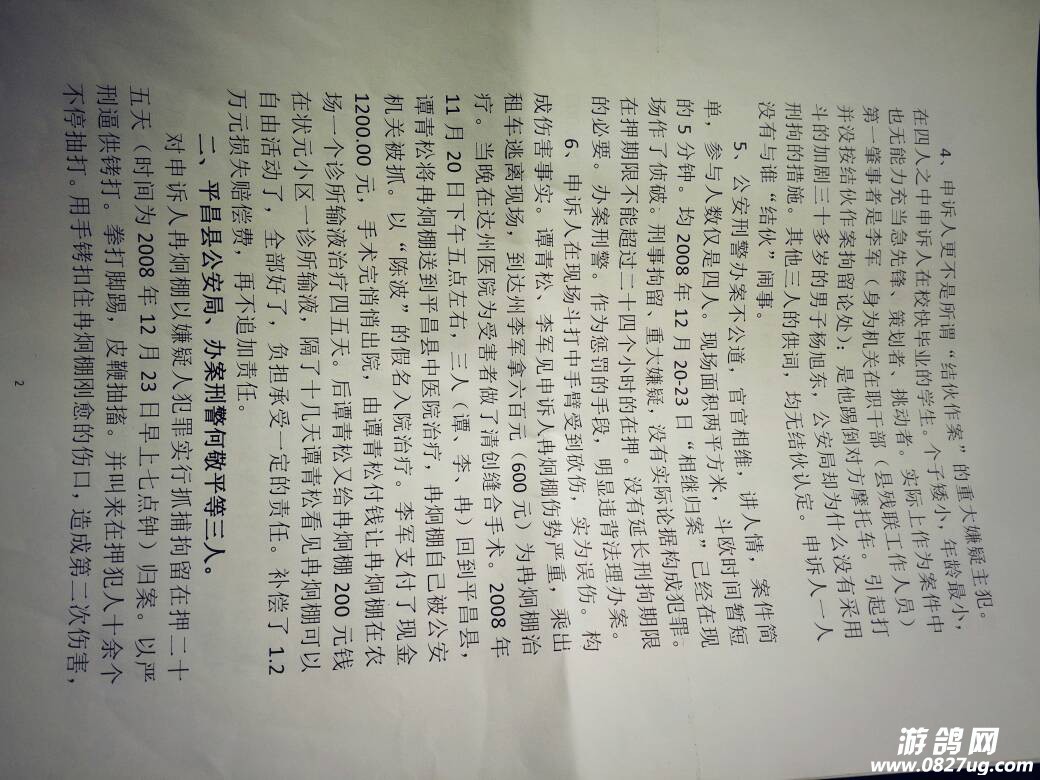 4、申诉人更不是所谓“结伙作案”的重大嫌疑主犯。
在四人之中申诉人在校快毕业的学生。个子矮小，年龄最小，
也无能力充当急先锋、策划者、挑动者。实际上作为案件中
第一肇事者是李军（身为机关在职干部（县残联工作人员）
并没按结伙作案拘留论处）；是他踢倒对方摩托车。引起打
斗的加剧三十多岁的男子杨旭东，公安局却为什么没有采用
刑拘的措施。其他三人的供词，均无结伙认定。申诉人一人
没有与谁“结伙”闹事。
5、公安刑警办案不公道，官官相维，讲人情，案件简
单，参与人数仅是四人。现场面积两平方米，斗欧时间暂短
的5分钟。均2008年12月20-23日“相继归案”已经在现
场作了侦破。刑事拘留、重大嫌疑，没有实际论据构成犯罪。
在押期限不能超过二十四个小时的在押。没有延长刑拘期限
的必要。办案刑警。作为惩罚的手段，明显违背法理办案。
6、申诉人在现场斗打中手臂受到砍伤，实为误伤。构
成伤害事实。谭青松、李军见申诉人冉炯棚伤势严重，乘出
租车逃离现场，到达州李军拿六百元（600元）为冉炯棚治
疗。当晚在达州医院为受害者做了清创缝合手术。2008年
11月20日下午五点左右，三人（谭、李、冉）回到平昌县，
谭青松将冉炯棚送到平昌县中医院治疗，冉炯棚自己被公安
机关被抓。以“陈波”的假名入院治疗。李军支付了现金
1200.00元，手术完悄悄出院，由谭青松付钱让冉炯棚在农
场一个诊所输液治疗四五天。后谭青松又给冉炯棚200元钱
在状元小区一诊所输液，隔了十几天谭青松看见冉炯棚可以
自由活动了，全部好了，负担承受一定的责任。补偿了1.2
万元损失赔偿费，再不追加责任。
二、平昌县公安局、办案刑警何敬平等三人。
对申诉人冉炯棚以嫌疑人犯罪实行抓捕拘留在押二十
五天（时间为2008年12月23日早上七点钟）归案。以严
刑逼供铐打。拳打脚踢，皮鞭抽搕。并叫来在押犯人十余个
不停抽打。用手铐扣住冉炯棚刚愈的伤口，造成第二次伤害，
2
游鸽网
www.0827ug.com